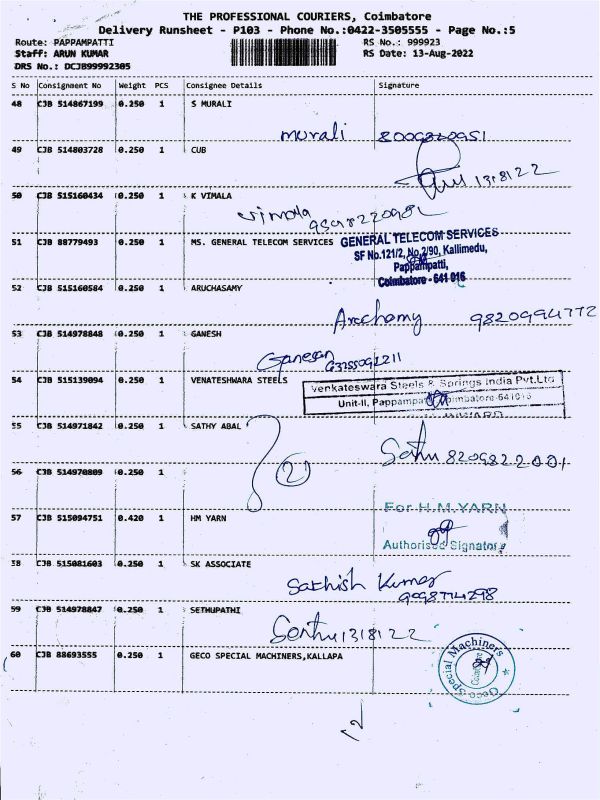 THE PROFESSIONAL COURIERS, Coimbatore
Delivery Runsheet - P103 - Phone No.:0422-3505555 - Page No.:5
Route: PAPPAMPATTI RS No.: 999923
Staff: ARUN KUMAR RS Date: 13-Aug-2022
DRS No.: DCJB99992305
S No Consignment No Weight PCS Consignee Details Signature
48 CJB 514867199 0.250 1 S MURALI
murali 8009820951
49 CJB 514803728 0.250 1 CUB
13/8/22
50 CJB 515160434 0.250 1 K VIMALA
vimala
51 CJB 88779493 0.250 1 MS. GENERAL TELECOM SERVICES
GENERAL TELECOM SERVICES
SF No.121/2, No.2/90, Kallimedu,
Pappampatti,
Coimbatore - 641 016
52 CJB 515160584 0.250 1 ARUCHASAMY
9820994772
53 CJB 514978848 0.250 1 GANESH
Ganesan
54 CJB 515139094 0.250 1 VENATESHWARA STEELS
Venkateswara Steels & Springs India Pvt.Ltd
Unit-II, Pappampatti Coimbatore-641016
INWARD
55 CJB 514971842 0.250 1 SATHY ABAL
8209822001
56 CJB 514970809 0.250 1
2
57 CJB 515094751 0.420 1 HM YARN
For H.M.YARN
Authorised Signatory
58 CJB 515081603 0.250 1 SK ASSOCIATE
Sathish Kumar
59 CJB 514978847 0.250 1 SETHUPATHI
Sethu 13/8/22
60 CJB 88693555 0.250 1 GECO SPECIAL MACHINERS,KALLAPA
Geco Special Machiners
Coimbatore